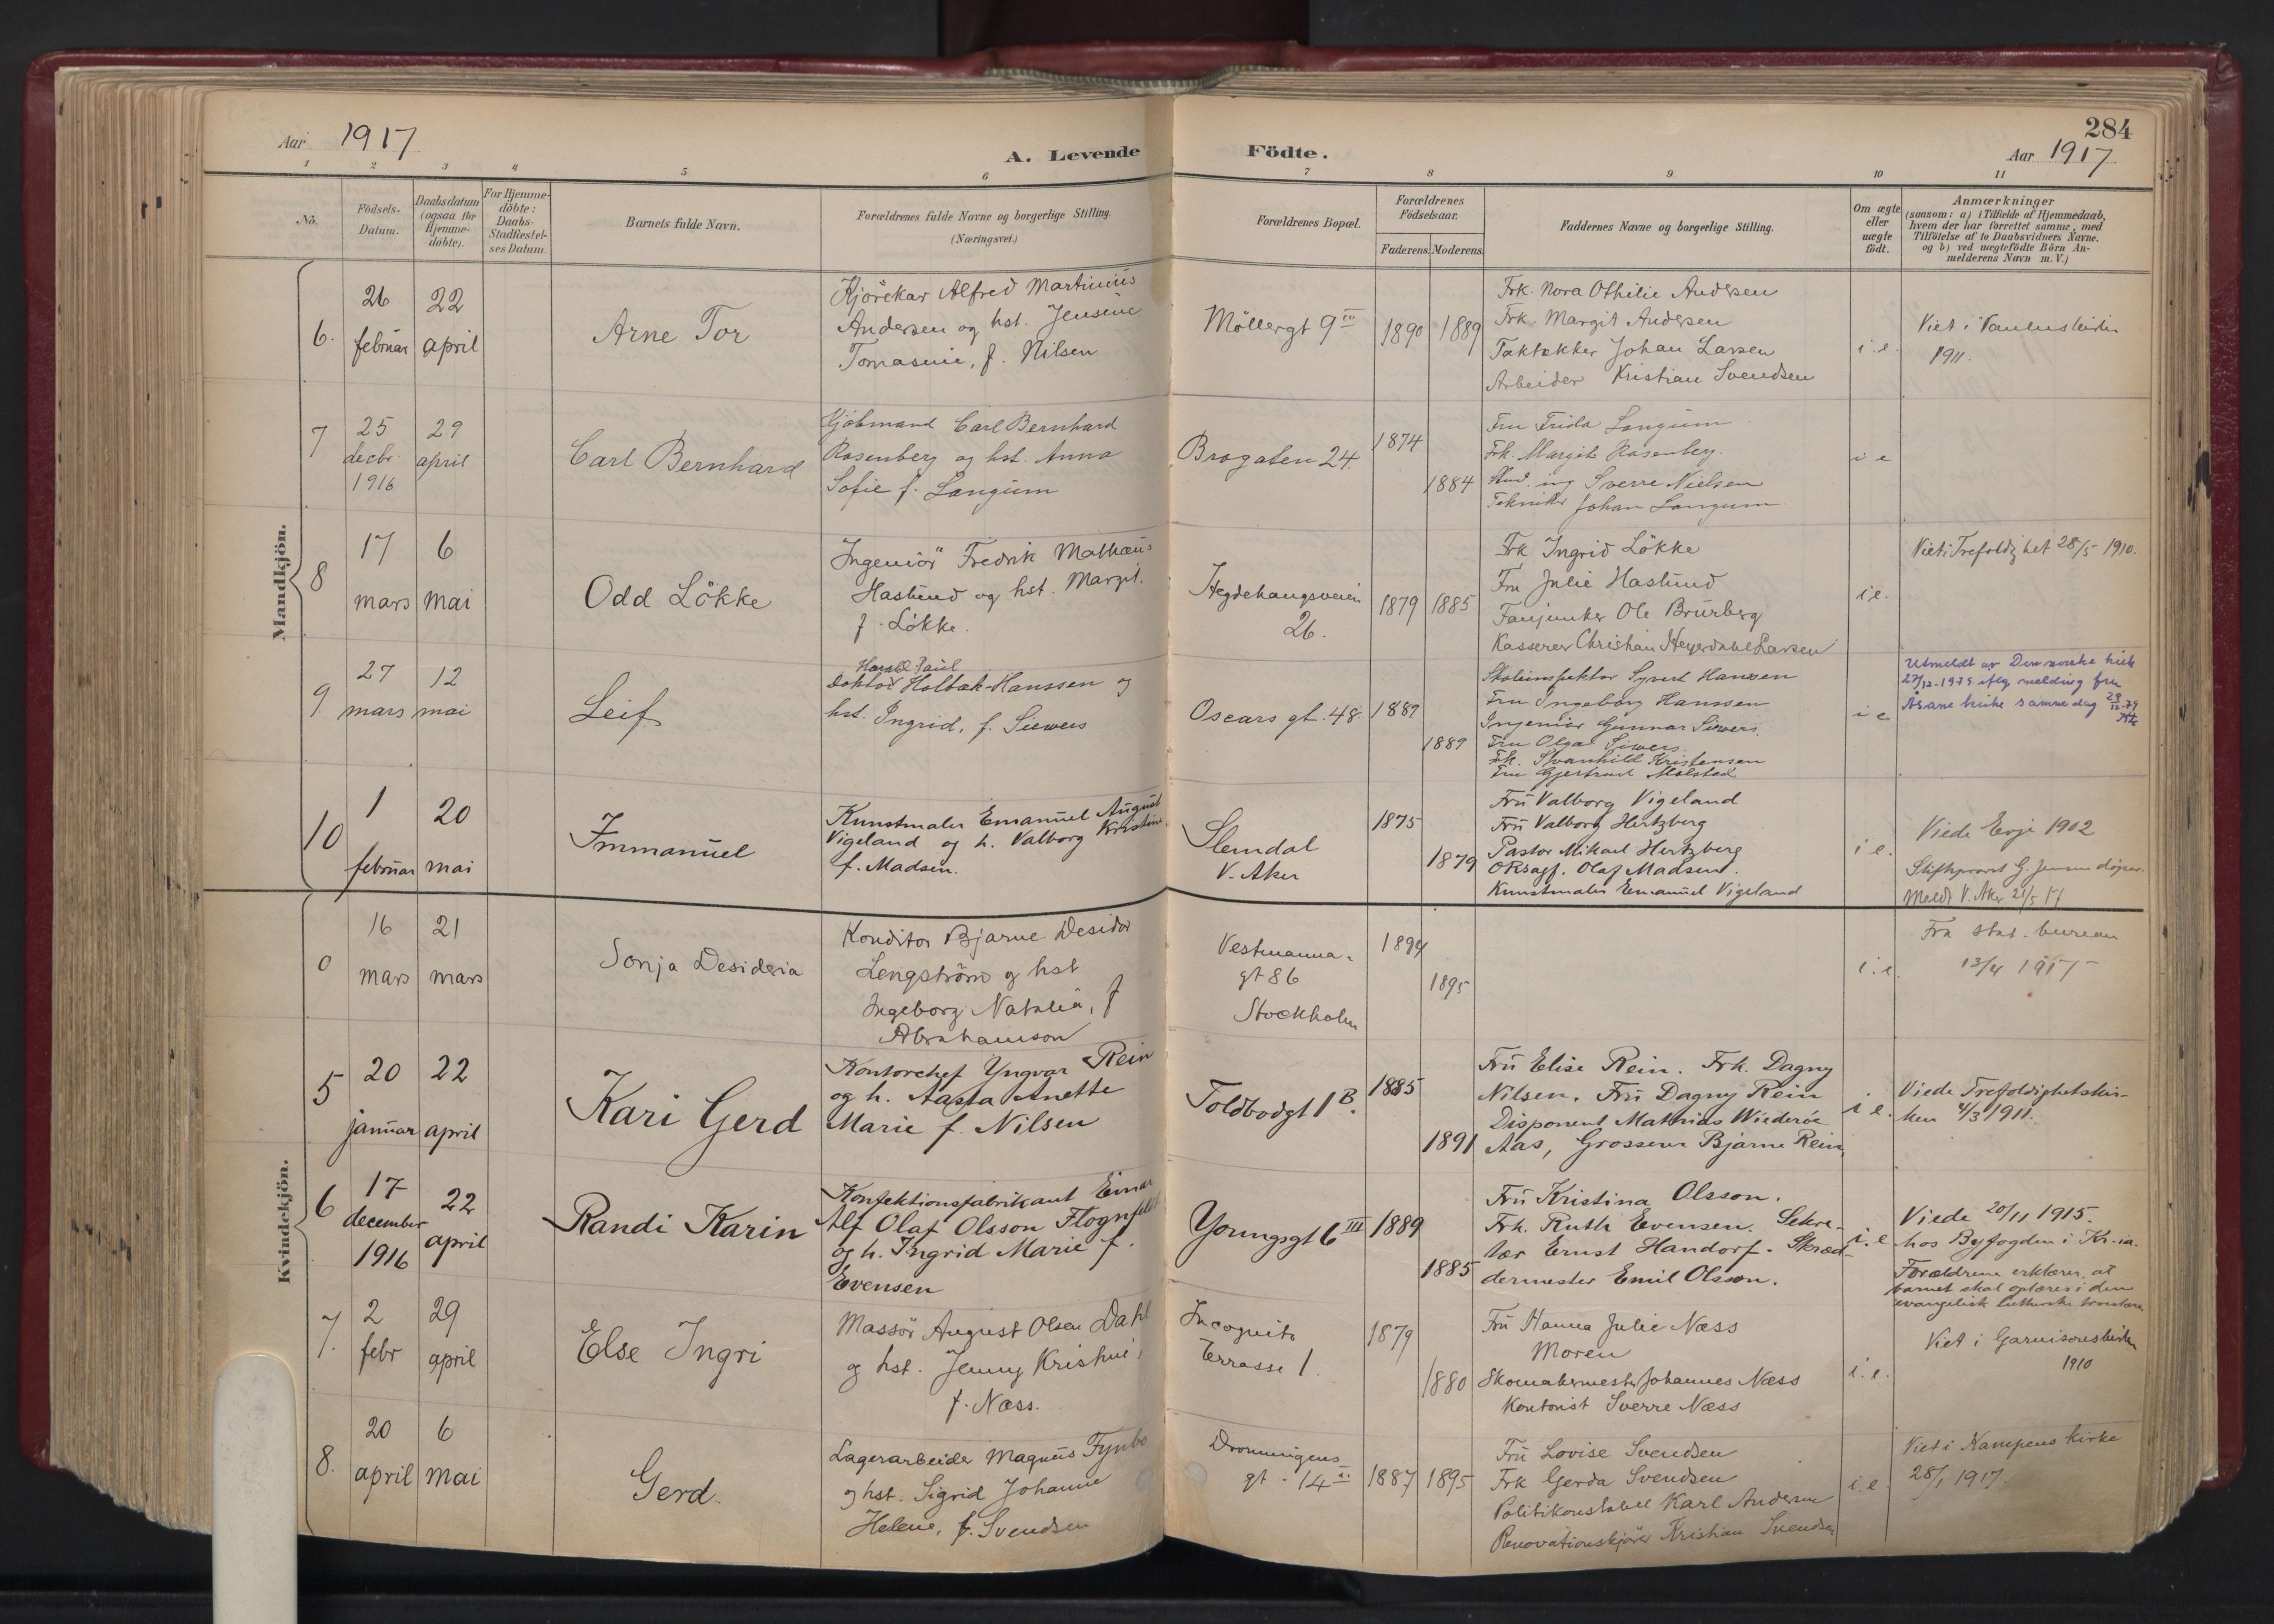 Aar 1917
A. Levende Födte.
284
Aar 1917
1 2 3 4 5 6 7 8 9 10 11
No.
Födsels-Datum.
Daabsdatum (ogsaa for Hjemme-döbte).
For Hjemme-döbte: Daabs-Stadfestel-ses Datum.
Barnets fulde Navn.
Forældrenes fulde Navne og borgerlige Stilling. (Næringsvei.)
Forældrenes Bopæl.
Forældrenes Födselsaar.
Faderens. Moderens.
Faddernes Navne og borgerlige Stilling.
Om ægte eller uægte födt.
Anmærkninger
(saasom: a) i Tilfælde af Hjemmedaab,
hvem der har forrettet samme, med
Tilföielse af to Daabsvidners Navne.
og b) ved uægtefödte Börn An-
melderens Navn m. V.)
Mandkjön.
6.
26 februar
22 april
Arne Tor
Kjörekar Alfred Martinius
Andersen og hst. Jensine
Tomasine, f. Nilsen
Möllergt 9 III
1890 1889
Frk. Nora Othilie Andersen
Frk. Margit Andersen
Taktækker Johan Larsen
Arbeider Kristian Svendsen
i.e.
Viet i Pauluskirke
1911.
7
25 decbr. 1916
29 april
Carl Bernhard
Kjöbmand Carl Bernhard
Rosenberg og hst. Anna
Sofie f. Langum
Brogaten 24.
1874
1884
Fru Frida Langum
Frk. Margit Rosenberg.
Stud. ing Sverre Nielsen
Tekniker Johan Langum
i e
8
17 mars
6 mai
Odd Lökke
Ingeniör Fredrik Mathæus
Haslund og hst. Margit.
f. Lökke.
Hegdehaugsveien
26.
1879 1885
Frk Ingrid Lökke
Fru Julie Haslund
Fanjunker Ole Brurberg
Kasserer Christian Heyerdahl Larsen
i e.
Viet i Trefoldighet 28/5 1910.
9.
27 mars
12 mai
Leif
Harald Paul
Doktor Holbæk-Hanssen og
hst. Ingrid, f. Siewers
Oscars gt. 48.
1889
1889
Skoleinspektør Syvert Hanssen
Fru Ingeborg Hanssen
Ingeniør Gunnar Siewers.
Fru Olga Siewers.
Frk. Svanhild Kristensen
Fru Gjertrud Mølstad
i e
Utmeldt av Den norske kirke
27/12-1979 iflg melding fra
Åsane kirke samme dag
10
1 februar
20 mai
Immanuel
Kunstmaler Emanuel August
Vigeland og h. Valborg Kristine
f. Madsen.
Slemdal
V. Aker
1875
1879
Fru Valborg Vigeland
Fru Valborg Hertzberg
Pastor Mikael Hertzberg
O.R.sagf. Olaf Madsen.
Kunstmaler Emanuel Vigeland
i e.
Viede Evje 1902
Stiftsprovst G. Jensen
Meldt V. Aker 21/5 17
Kvindekjön.
0
16 mars
21 mars
Sonja Desideria
Konditor Bjarne Desidor
Lengström og hst
Ingeborg Natalia, f
Abrahamson
Vestmanna-
gt 86
Stockholm
1894
1895
i.e.
Fra stat. bureau
13/4 1917
5
20 januar
22 april
Kari Gerd
Kontorchef Yngvar Rein
og h. Aasta Anette
Marie f. Nilsen
Toldbodgt 1 B.
1885
1891
Fru Elise Rein. Frk. Dagny
Nilsen. Fru Dagny Rein
Disponent Mathias Wiederöe
Aas, Grosserer Bjarne Rein,
i e.
Viede Trefoldighetskir-
ken 4/3 1911.
6
17 december 1916
22 april
Randi Karin
Konfektionsfabrikant Einar
Alf Olaf Olsson Flognfeldt
og h. Ingrid Marie f.
Evensen
Youngsgt 6 III
1889
1885
Fru Kristina Olsson.
Frk. Ruth Evensen. Sekre-
tær Ernst Handorf. Skræd-
dermester Emil Olsson.
i. e
Viede 20/11 1915.
hos Byfogden i Kr.ia.
Forældrene erklærer, at
barnet skal oplæres i den
evangelisk lutherske troslære
7.
2 febr
29 april
Else Ingri
Massör August Olsen Dahl
og hst. Jenny Kristine,
f. Næss.
Incognito
Terrasse 1.
1879
1880
Fru Hanna Julie Næss
Moren
Skomakermester Johannes Næss
Kontorist Sverre Næss
i.e.
Viet i Garnisonskirken
1910
8.
20 april
6 mai
Gerd.
Lagerarbeider Magnus Fynbo
og hst. Sigrid Johanne
Helene, f. Svendsen
Dronningens
gt. 14 II
1887 1895
Fru Lovise Svendsen
Frk Gerda Svendsen
Politikonstabel Karl Andersen
Renovationskjörer Kristian Svendsen
i. e.
Viet i Kampens kirke
28/1 1917.